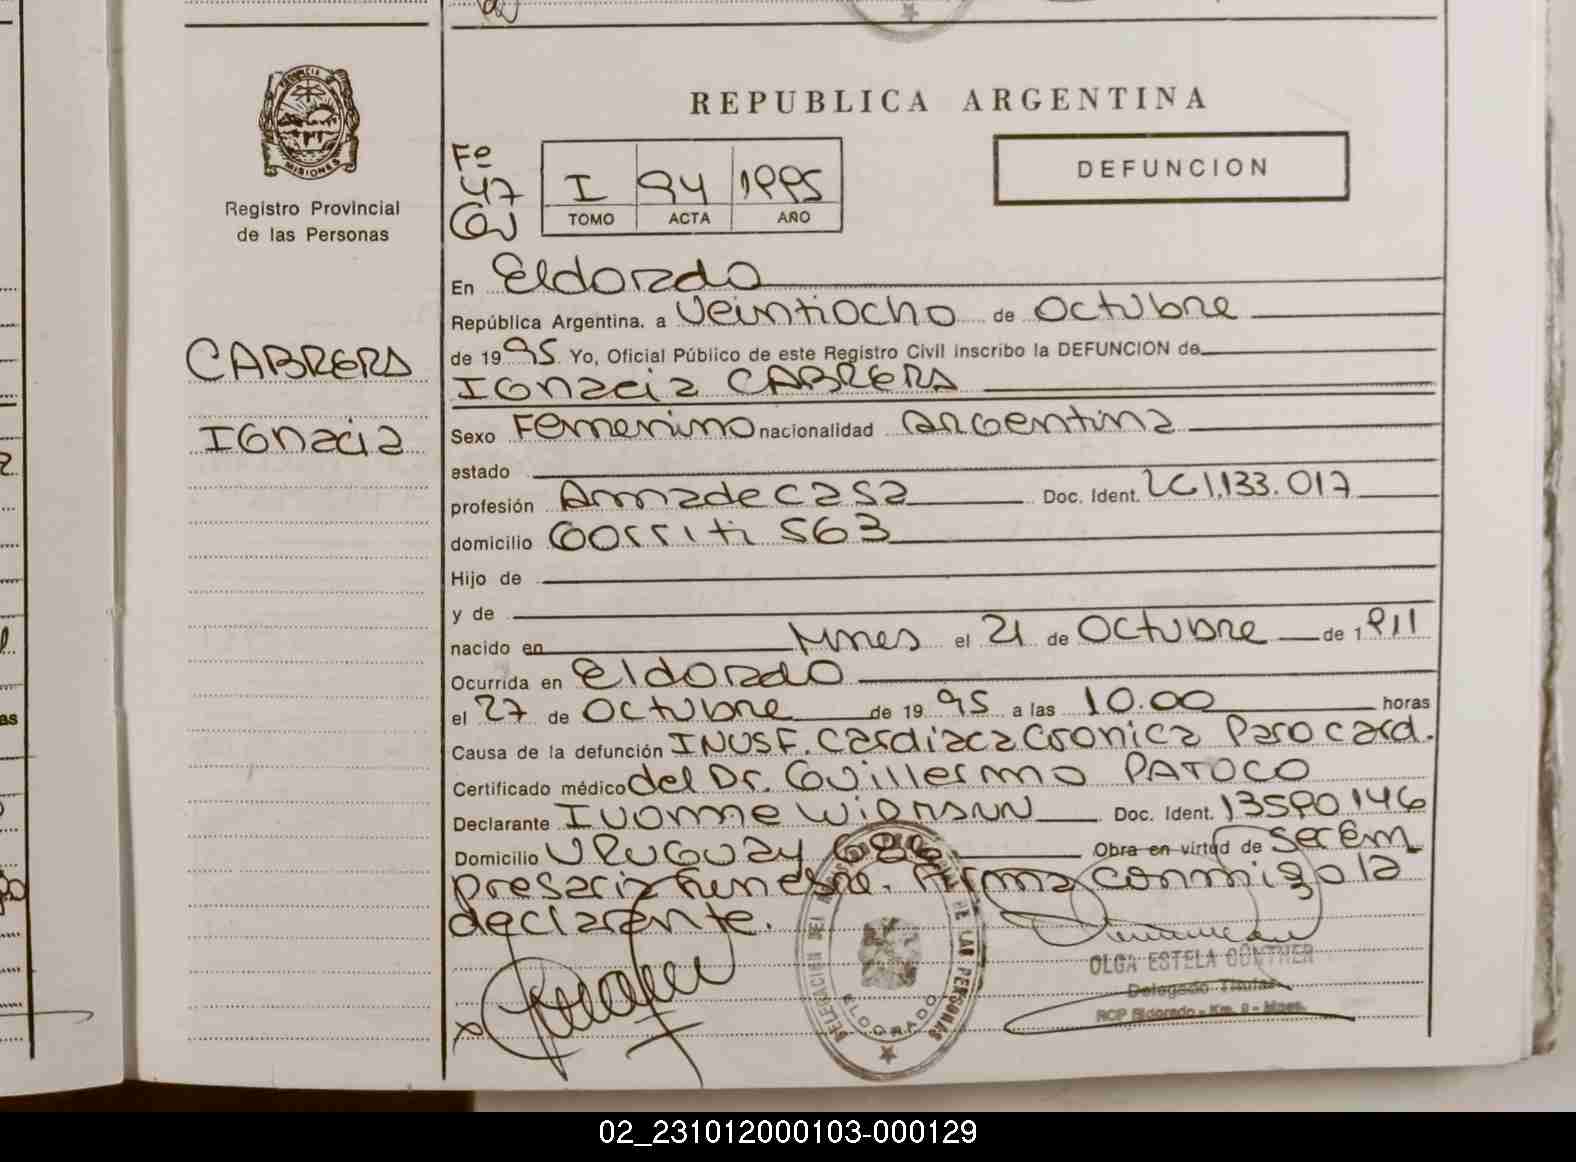 REPUBLICA ARGENTINA
DEFUNCION
PROVINCIA DE
MISIONES
Registro Provincial
de las Personas
Fº
47
I 94 1995
TOMO ACTA AÑO
CABRERA
Ignacia
En Eldorado
República Argentina, a Veintiocho de Octubre
de 1995 Yo, Oficial Público de este Registro Civil inscribo la DEFUNCION de
Ignacia CABRERA
Sexo Femenino nacionalidad argentina
estado
profesión Ama de casa Doc. Ident. LC 1.133.017
domicilio Gorriti 563
Hijo de
y de
nacido en Mnes el 21 de Octubre de 1911
Ocurrida en Eldorado
el 27 de Octubre de 1995 a las 10.00 horas
Causa de la defunción INUSF. Cardiaca Cronica Paro card.
Certificado médico del Dr. Guillermo PATOCO
Declarante Ivonne Doc. Ident. 13590146
Domicilio URUGUAY Obra en virtud de ser em
presaria funebre. Firma conmigo la
declarante.
DELEGACION DEL REGISTRO PROVINCIAL DE LAS PERSONAS
ELDORADO
OLGA ESTELA GÜNTHER
Delegado Titular
RCP Eldorado - Km. 9 - Mnes.
02_231012000103-000129